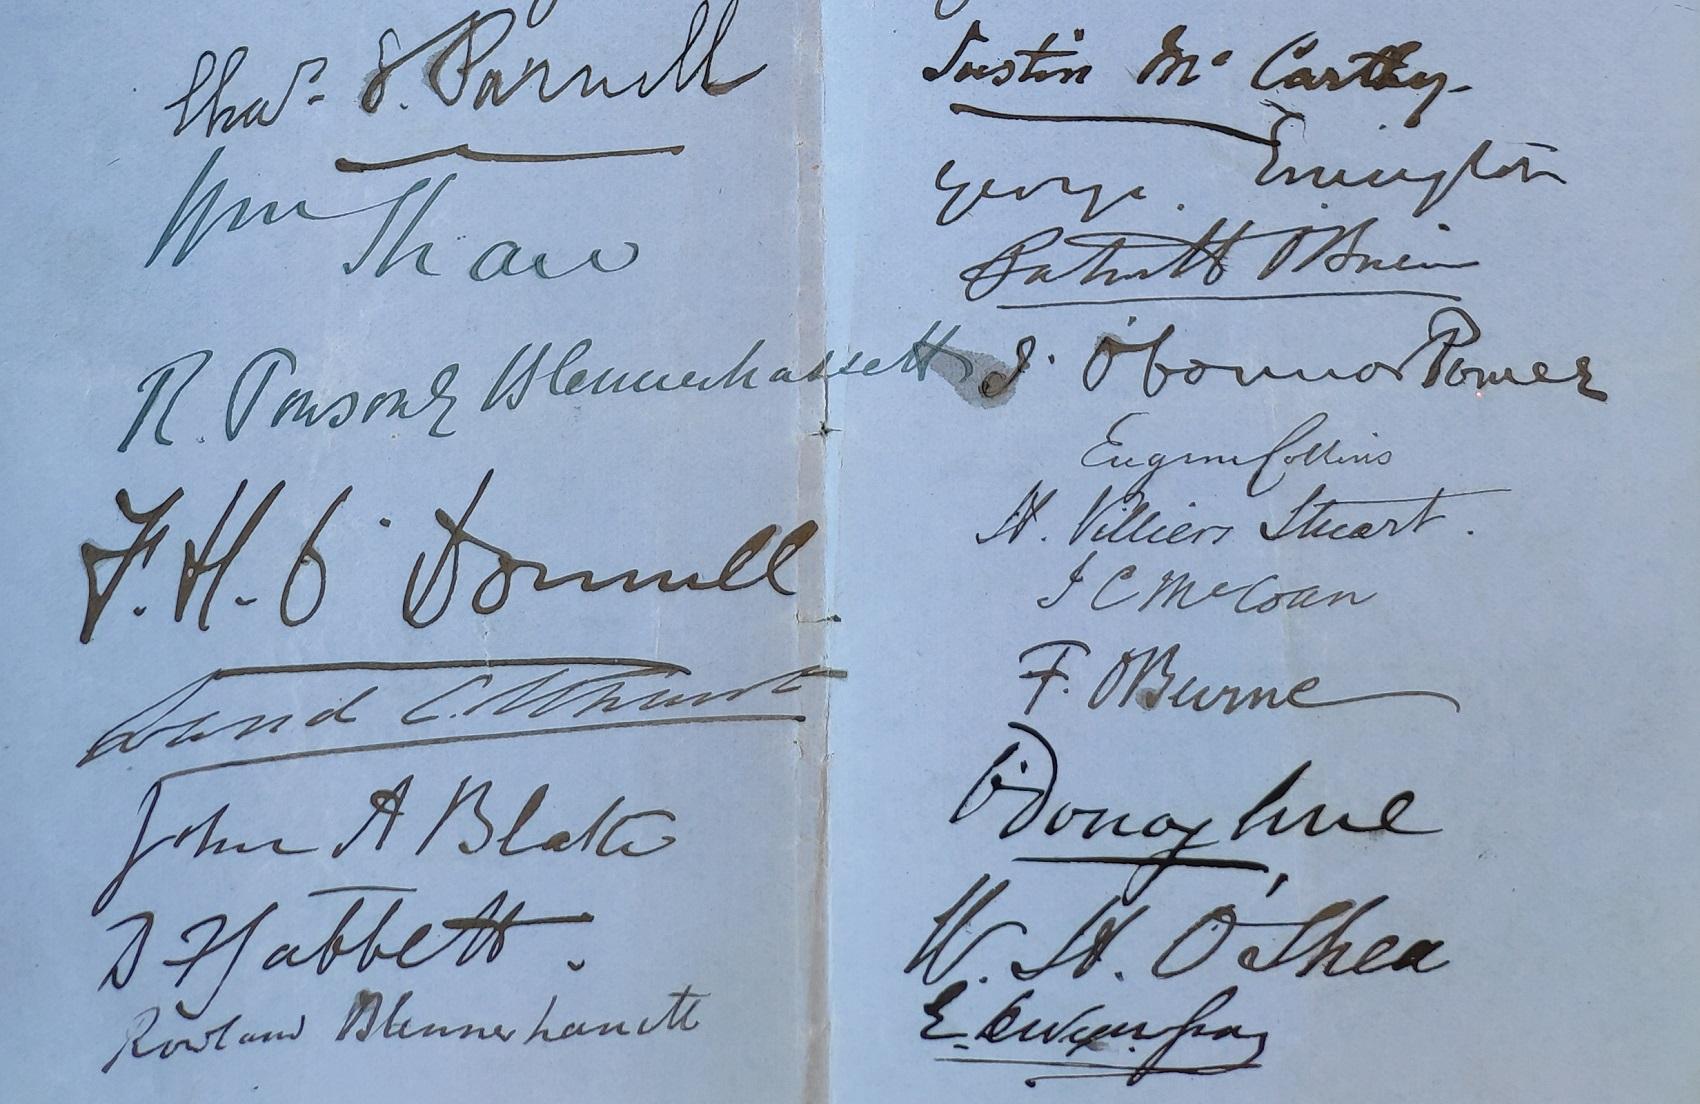 Chas. S. Parnell
Wm Shaw
R. Ponsonby Blennerhassett
F. H. O'Donnell
John A Blake
D F Gabbett.
Rowland Blennerhassett
Justin McCarthy
George Errington
Patrick O'Brien
J. O'Connor Power
Eugene Collins
H. Villiers Stuart.
J C McCoan
F. O'Beirne
O'Donoghue
W. H. O'Shea
E. Dwyer Gray